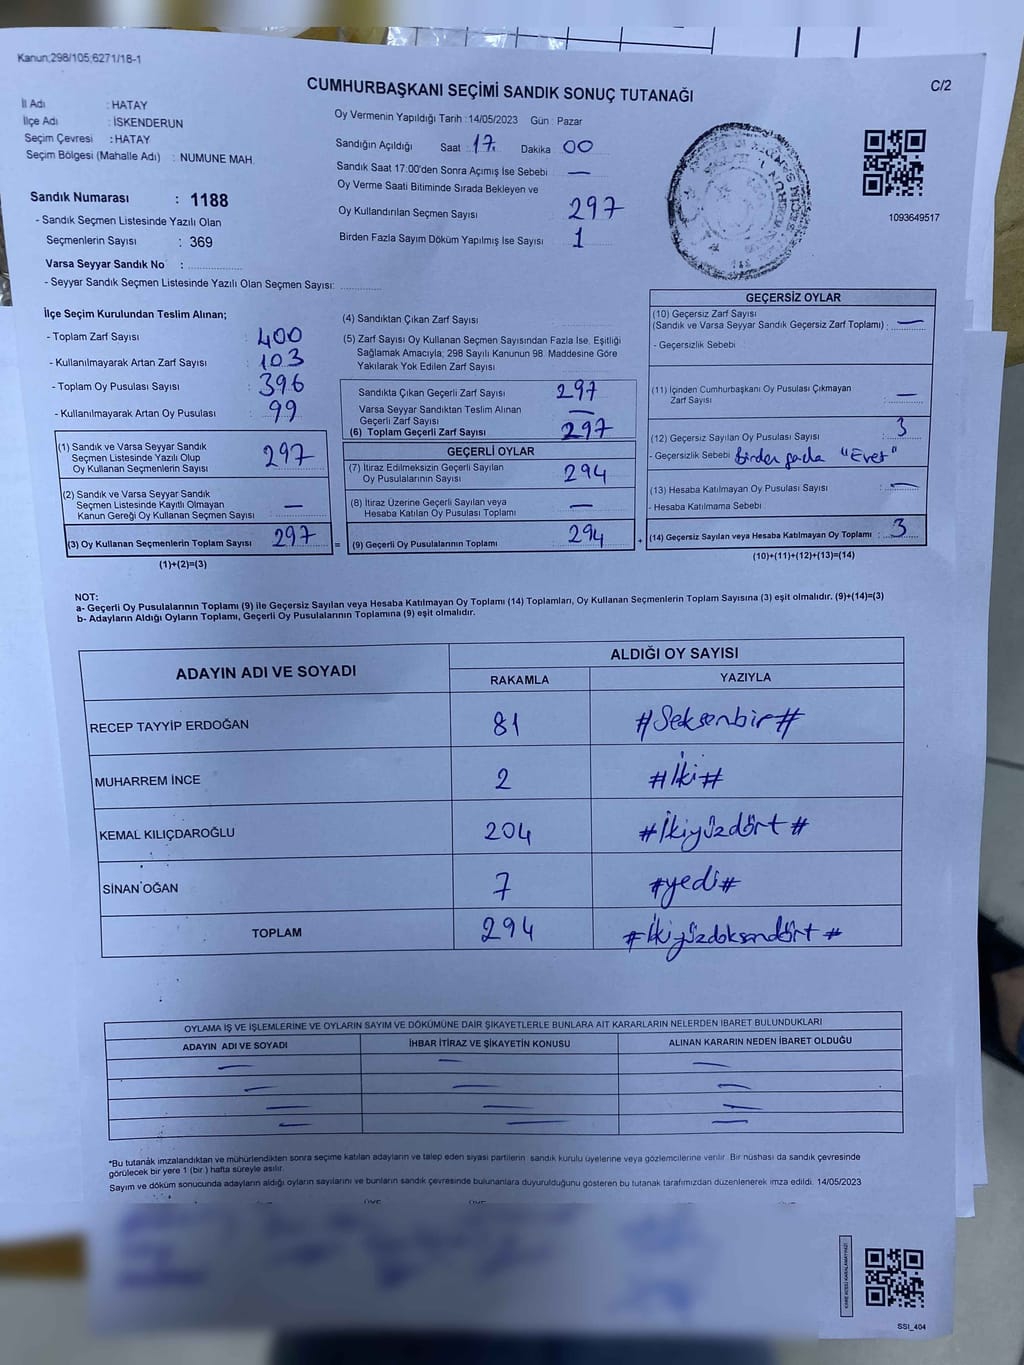 Kanun;298/105;6271/18-1
CUMHURBAŞKANI SEÇİMİ SANDIK SONUÇ TUTANAĞI
C/2
İl Adı : HATAY
İlçe Adı : İSKENDERUN
Seçim Çevresi : HATAY
Seçim Bölgesi (Mahalle Adı) : NUMUNE MAH.
Oy Vermenin Yapıldığı Tarih : 14/05/2023 Gün : Pazar
Sandığın Açıldığı Saat : 17. Dakika 00
Sandık Saat 17:00'den Sonra Açımış İse Sebebi —
Oy Verme Saati Bitiminde Sırada Bekleyen ve
Oy Kullandırılan Seçmen Sayısı 297
Birden Fazla Sayım Döküm Yapılmış İse Sayısı 1
1093649517
Sandık Numarası : 1188
- Sandık Seçmen Listesinde Yazılı Olan
Seçmenlerin Sayısı : 369
Varsa Seyyar Sandık No :
- Seyyar Sandık Seçmen Listesinde Yazılı Olan Seçmen Sayısı:
İlçe Seçim Kurulundan Teslim Alınan;
- Toplam Zarf Sayısı : 400
- Kullanılmayarak Artan Zarf Sayısı : 103
- Toplam Oy Pusulası Sayısı : 396
- Kullanılmayarak Artan Oy Pusulası : 99
(1) Sandık ve Varsa Seyyar Sandık
Seçmen Listesinde Yazılı Olup
Oy Kullanan Seçmenlerin Sayısı 297
(2) Sandık ve Varsa Seyyar Sandık
Seçmen Listesinde Kayıtlı Olmayan
Kanun Gereği Oy Kullanan Seçmen Sayısı —
(3) Oy Kullanan Seçmenlerin Toplam Sayısı 297
(1)+(2)=(3)
=
(4) Sandıktan Çıkan Zarf Sayısı
(5) Zarf Sayısı Oy Kullanan Seçmen Sayısından Fazla İse, Eşitliği
Sağlamak Amacıyla; 298 Sayılı Kanunun 98. Maddesine Göre
Yakılarak Yok Edilen Zarf Sayısı
Sandıkta Çıkan Geçerli Zarf Sayısı 297
Varsa Seyyar Sandıktan Teslim Alınan
Geçerli Zarf Sayısı —
(6) Toplam Geçerli Zarf Sayısı 297
GEÇERLİ OYLAR
(7) İtiraz Edilmeksizin Geçerli Sayılan
Oy Pusulalarının Sayısı 294
(8) İtiraz Üzerine Geçerli Sayılan veya
Hesaba Katılan Oy Pusulası Toplamı —
(9) Geçerli Oy Pusulalarının Toplamı 294
+
GEÇERSİZ OYLAR
(10) Geçersiz Zarf Sayısı
(Sandık ve Varsa Seyyar Sandık Geçersiz Zarf Toplamı) : —
- Geçersizlik Sebebi :
(11) İçinden Cumhurbaşkanı Oy Pusulası Çıkmayan
Zarf Sayısı : —
(12) Geçersiz Sayılan Oy Pusulası Sayısı : 3
- Geçersizlik Sebebi Birden fazla "Evet"
(13) Hesaba Katılmayan Oy Pusulası Sayısı : —
- Hesaba Katılmama Sebebi
(14) Geçersiz Sayılan veya Hesaba Katılmayan Oy Toplamı : 3
(10)+(11)+(12)+(13)=(14)
NOT:
a- Geçerli Oy Pusulalarının Toplamı (9) ile Geçersiz Sayılan veya Hesaba Katılmayan Oy Toplamı (14) Toplamları, Oy Kullanan Seçmenlerin Toplam Sayısına (3) eşit olmalıdır. (9)+(14)=(3)
b- Adayların Aldığı Oyların Toplamı, Geçerli Oy Pusulalarının Toplamına (9) eşit olmalıdır.
ADAYIN ADI VE SOYADI
ALDIĞI OY SAYISI
RAKAMLA YAZIYLA
RECEP TAYYİP ERDOĞAN 81 #Seksenbir#
MUHARREM İNCE 2 #İki#
KEMAL KILIÇDAROĞLU 204 #İkiyüzdört#
SİNAN OĞAN 7 #yedi#
TOPLAM 294 #İkiyüzdoksandört#
OYLAMA İŞ VE İŞLEMLERİNE VE OYLARIN SAYIM VE DÖKÜMÜNE DAİR ŞİKAYETLERLE BUNLARA AİT KARARLARIN NELERDEN İBARET BULUNDUKLARI
ADAYIN ADI VE SOYADI İHBAR İTİRAZ VE ŞİKAYETİN KONUSU ALINAN KARARIN NEDEN İBARET OLDUĞU
— — —
— — —
— — —
— — —
*Bu tutanak imzalandıktan ve mühürlendikten sonra seçime katılan adayların ve talep eden siyasi partilerin sandık kurulu üyelerine veya gözlemcilerine verilir. Bir nüshası da sandık çevresinde
görülecek bir yere 1 (bir) hafta süreyle asılır.
Sayım ve döküm sonucunda adayların aldığı oyların sayılarını ve bunların sandık çevresinde bulunanlara duyurulduğunu gösteren bu tutanak tarafımızdan düzenlenerek imza edildi. 14/05/2023
SSI_404